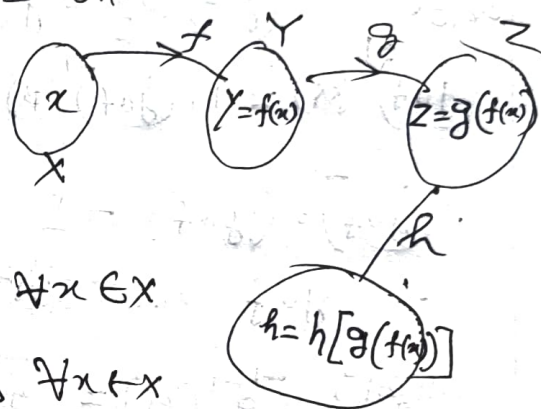 f Y g Z
x y=f(x) z=g(f(x))
X
h
∀x ∈ X
h=h[g(f(x))]
∀x ∈ X